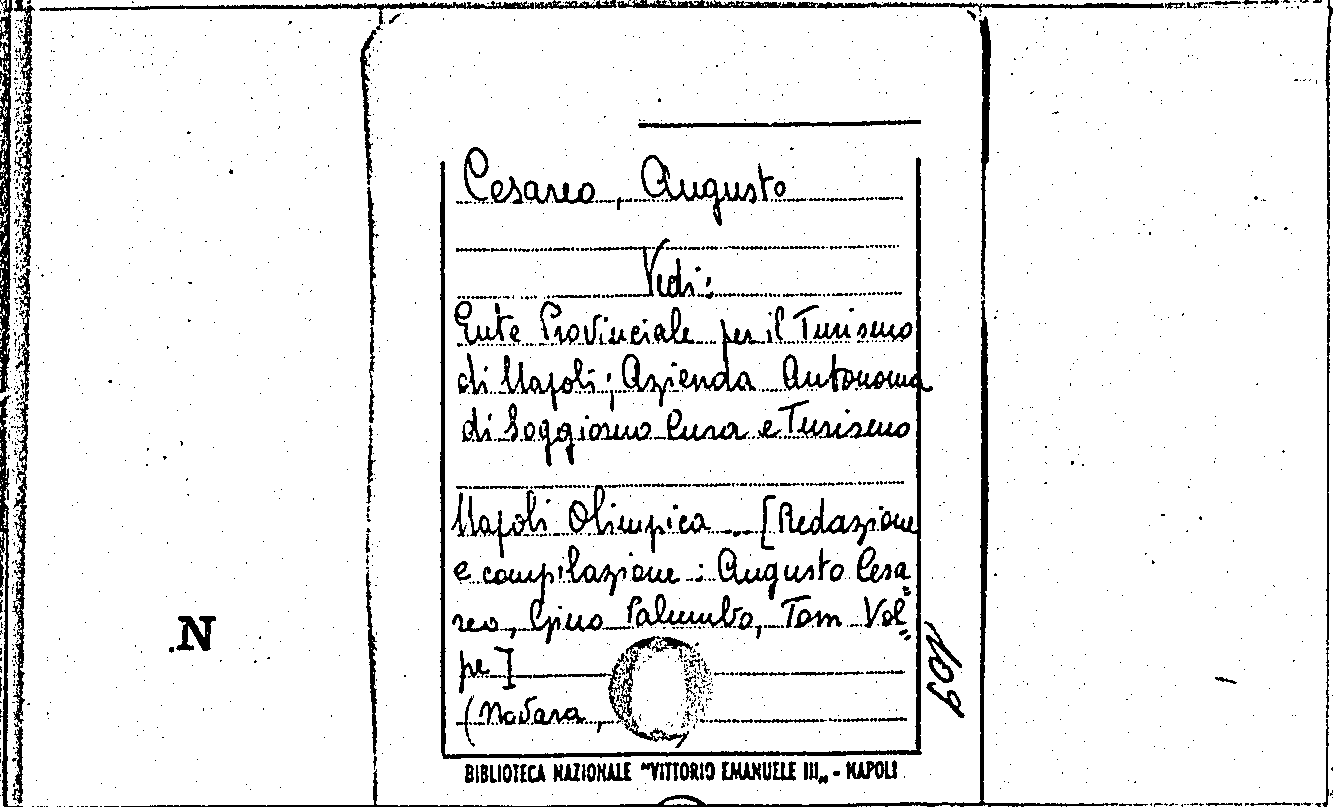 Cesareo, Augusto
Vedi:
Ente Provinciale per il Turismo
di Napoli; Azienda Autonoma
di Soggiorno Cura e Turismo
Napoli Olimpica ... [Redazione
e compilazione: Augusto Cesa"
reo, Gino Palumbo, Tom Vol"
pe]
(Novara,
109
N
BIBLIOTECA NAZIONALE "VITTORIO EMANUELE III„ - NAPOLI